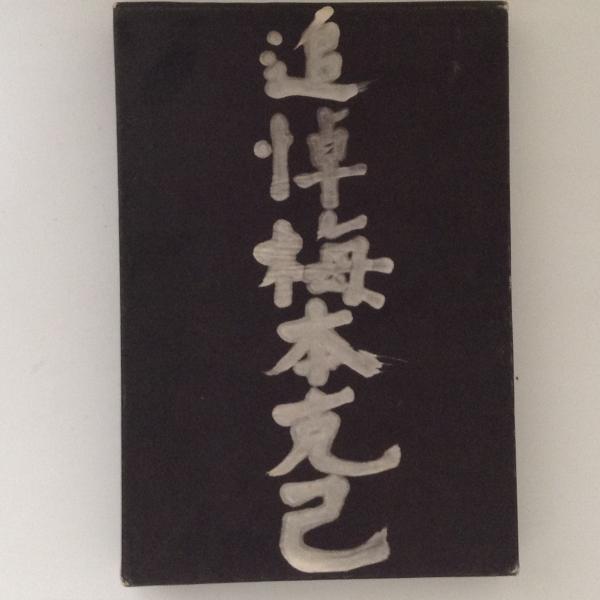 追悼梅本克己